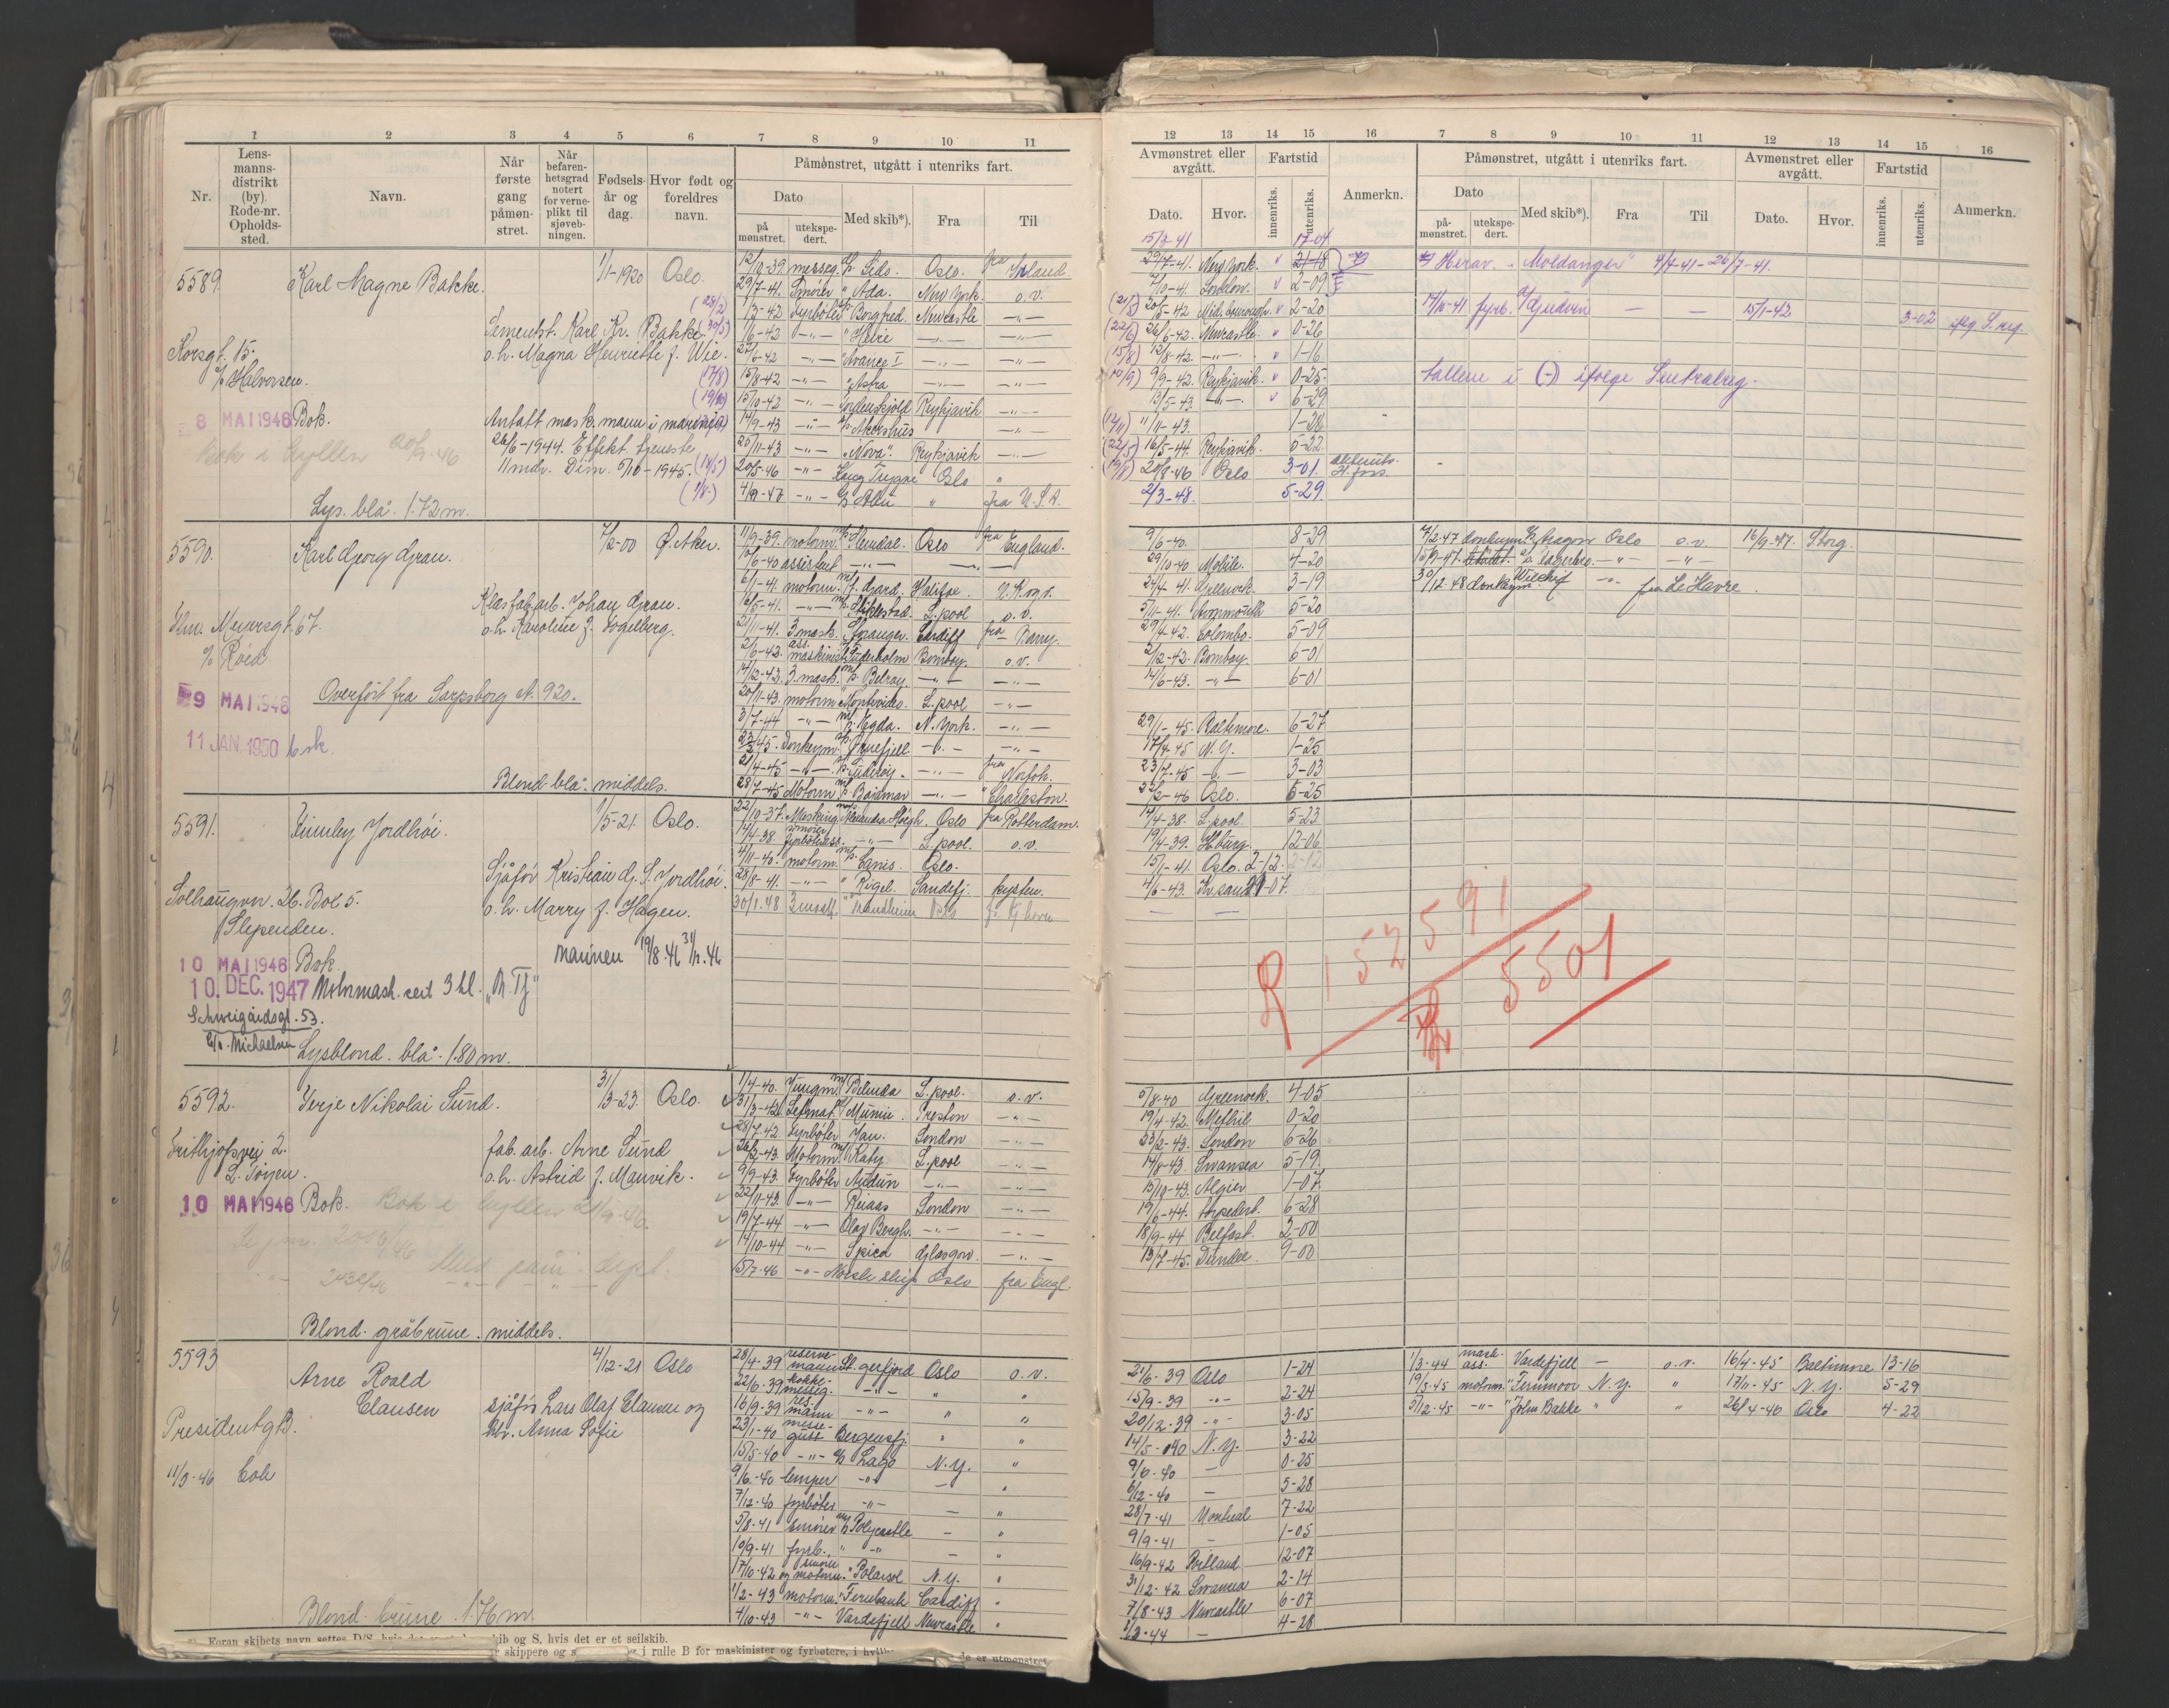 1 2 3 4 5 6 7 8 9 10 11
Nr.
Lens-
manns-
distrikt
(by).
Rode-nr.
Opholds-
sted.
Navn.
Når
første
gang
påmøn-
stret.
Når
befaren-
hetsgrad
notert
for verne-
plikt til
sjøveb-
ningen.
Fødsels-
år og
dag.
Hvor født og
foreldres
navn.
Påmønstret, utgått i utenriks fart.
Dato
på
mønstret.
utekspe-
dert.
Med skib*).
Fra
Til
5589. Karl Magne Bakke. 1/1-1920 Oslo.
Sementst. Karl Kr. Bakke
o.h. Magna Henriette f. Wie.
Korsgt. 15.
c/o Halvorsen.
8 MAI 1946 Bok.
Antatt mask.mann i marinen
26/6-1944. Effekt. tjeneste
11 mdr. Dim. 5/10-1945.
Lys. blå. 1.72 m.
12/10-39. messeg. Lido. Oslo. fra Irland.
29/7-41. Smører " Ada. New York. o.v.
1/3-42 Fyrbøter Borgfred. Newcastle -"-
1/6-42 -"- " Heire -"- -"-
27/6-42 -"- " Svanes I -"- -"-
15/8-42 -"- " Astra -"- -"-
15/10-42 -"- Nordenskjold Reykjavik -"-
14/9-43 -"- Akershus -"-
25/11-43 -"- " Nova". Reykjavik -"-
20/5-46 -"- Kong Trygve Oslo "
4/9-47 -"- " fra U.S.A.
5590. Karl Georg Gran. 7/2-00 Ø. Aker.
Klasfab.arb. Johan Gran.
o.h. Karoline f. Fogelberg.
Thv. Meyersgt. 67.
c/o Röed
9 MAI 1946 Overført fra Sarpsborg A. 920.
11 JAN. 1950 bok.
Blond. blå. middels.
11/9-39. motorm. Slemdal. Oslo fra England.
10/6-40 assistent -"- -"-
6/1-41. motorm. T. Gard. Halifax. U. Kong.
16/5-41. -"- Stiklestad. L.pool o.v.
21/11-41. 3 mask. Spanger. Cardiff fra Barry.
2/6-42. ass. maskinist Suderholm Bombay. o.v.
14/12-42. 3. mask. Belray. -"- -"-
20/11-43. motorm. Montevideo. L.pool -"-
3/7-44 -"- Vegda. N. York. -"-
23/2-45. Donkeym. Ørnefjell -"- -"-
21/4-45 -"- Suderøy. -"- fra Norfolk.
28/7-45 Motorm. Bajamar -"- " Charleston.
5591. Finnley Jordhøi. 1/5-21. Oslo.
Sjåfør Kristian Gj. S. Jordhøi.
o.h. Marry f. Hagen.
Solhaugvn. 26. Bol 5.
Slependen.
10 MAI 1946 Bok.
marinen 19/8.46 31/12.46
10. DEC. 1947 Motormask. sert 3 kl.
Schweigårdsgt. 53.
c/o. Michaelsen
Lysblond. blå. 1.80 m.
22/10-37. Oslo fra Rotterdam.
14/4-38 -"- L.pool. o.v.
4/11-40. motorm. Canis. Oslo.
28/8-41. -"- " Rigel. Sandefj. kysten.
30/1.48 " Mandheim Oslo
5592. Terje Nikolai Sund. 31/3-23. Oslo.
fab.arb. Arne Sund
o.h. Astrid f. Mauvik.
Fritjofsvei 2.
L. Tøyen.
10 MAI 1946 Bok. Bok i hyllen 21/9-46.
Blond. gråbrune. middels.
1/4-40. Jungm. Belinda L.pool. o.v.
31/3-42. Lettmat. Mimie. Preston -"-
28/7-42 Fyrbøter Jan. London -"-
26/2-43. Motorm. Katy L.pool -"-
9/9-43. Fyrbøter Audun -"- -"-
22/11-43. -"- Reiaas London -"-
19/7-44 -"- Olav Bergh. -"- -"-
14/10-44 -"- Spica Glasgow. -"-
15/7-46 -"- Norsk skip Oslo fra Engl.
5593 Arne Roald
Clausen 4/12-21 Oslo
sjåfør Lars Olaf Clausen og
htr. Anna Sofie
Presidentgt.
11/3-46 bok
Blond. brune. 1.76 m.
28/4-39 reserve-mann St.gerfjord Oslo o.v.
22/6-39 kokke-messeg. -"- " "
16/9-39 res. mann -"- " "
23/1-40 messe-gutt Bergensfj. " "
15/5-40 -"- Lago N.Y. "
9/6-40 lemper -"- - "
7/12-40 fyrbøter -"- - "
5/8-41 smører Polycastle - "
10/9-41 fyrb. " -"- - "
17/10-42 smører og motorm. " Polarsol N.Y. "
1/2-43 motorm. " Fernbank Cardiff "
4/10-43 -"- Vardefjell Newcastle "
12 13 14 15 16 7 8 9 10 11 12 13 14 15 16
Avmønstret eller
avgått.
Fartstid
Dato.
Hvor.
innenriks.
utenriks.
Anmerkn.
Påmønstret, utgått i utenriks fart.
Dato
på-
mønstret.
utekspe-
dert.
Med skib*).
Fra
Til
Avmønstret eller
avgått.
Dato.
Hvor.
Fartstid
innenriks.
utenriks.
Anmerkn.
15/3-41 17-04
29/7-41. New York. 21-18
7/10-41 London. 2-09
20/5-42 Midlesbrough. 2-20
26/6-42. Newcastle. 0-26
12/8-42. -"- 1-16
9/9-42. Reykjavik. 0-25
13/5-43. -"- 6-29
11/11-43. 1-28
16/5-44. Reykjavik. 5-22
20/8-46 Oslo 3-01
2/3-48. 5-29
"Moldanger" 4/4-41-26/7-41.
17/10-41 fyrb. Gudvin - - 15/1-42 3-02 iflg S.reg
tallene i (-) ifølge Sentralreg.
9/6-40. 8-29
29/10-40 Mobile. 4-20
24/4-41. Greenock. 3-19
5/11-41. Avonmouth 5-20
29/4-42. Colombo. 5-09
2/12-42. Bombay. 6-01
14/6-43. -"- 6-01
29/1-45. Baltimore. 6-27
17/4-45 N.Y. 1-25
23/7-45 -"- 3-03
22/2-46 Oslo. 6-25
7/2-47 donkeym. Aragon Oslo o.v. 16/9-47. Storg.
30/12-48 donkeym. -"- fra Le Havre.
14/4-38. L.pool. 5-23
19/4-39. Hburg. 12-06
15/1-41. Oslo. 2-12.
4/6-43. Kr.sand 21-07.
R 152591
R 5501
5/8-40 Greenock. 4-05
19/4-42. Methil 0-20
23/2-43. London 6-26
14/8-43 Swansea 5-19.
15/10-43. Algier 1-07.
19/6-44. torpedert. 6-28
18/9-44 Belfast. 2-00
13/7-45. Dundee. 9-00
21/6-39 Oslo 1-24
15/9-39 -"- 2-24
20/12-39 -"- 3-05
14/5-40 N.Y. 3-22
9/6-40 - 0-25
6/12-40 - 5-28
28/7-41 Montreal 7-22
9/9-41 - 1-05
16/9-42 Portland 12-07
31/12-42 Swansea 2-14
7/8-43 Newcastle 6-07
1/3-44 - 4-28
1/3-44 mask. ass. Vardefjell - o.v. 16/4-45 Baltimore 13-16
19/5-45 motorm. " Fernmoor N.Y. " 17/11-45 N.Y. 5-29
5/12-45 -"- " John Bakke " " 26/4-46 Oslo 4-22
Foran skibets navn settes D/S, hvis det er et dampskib og S, hvis det er et seilskib.